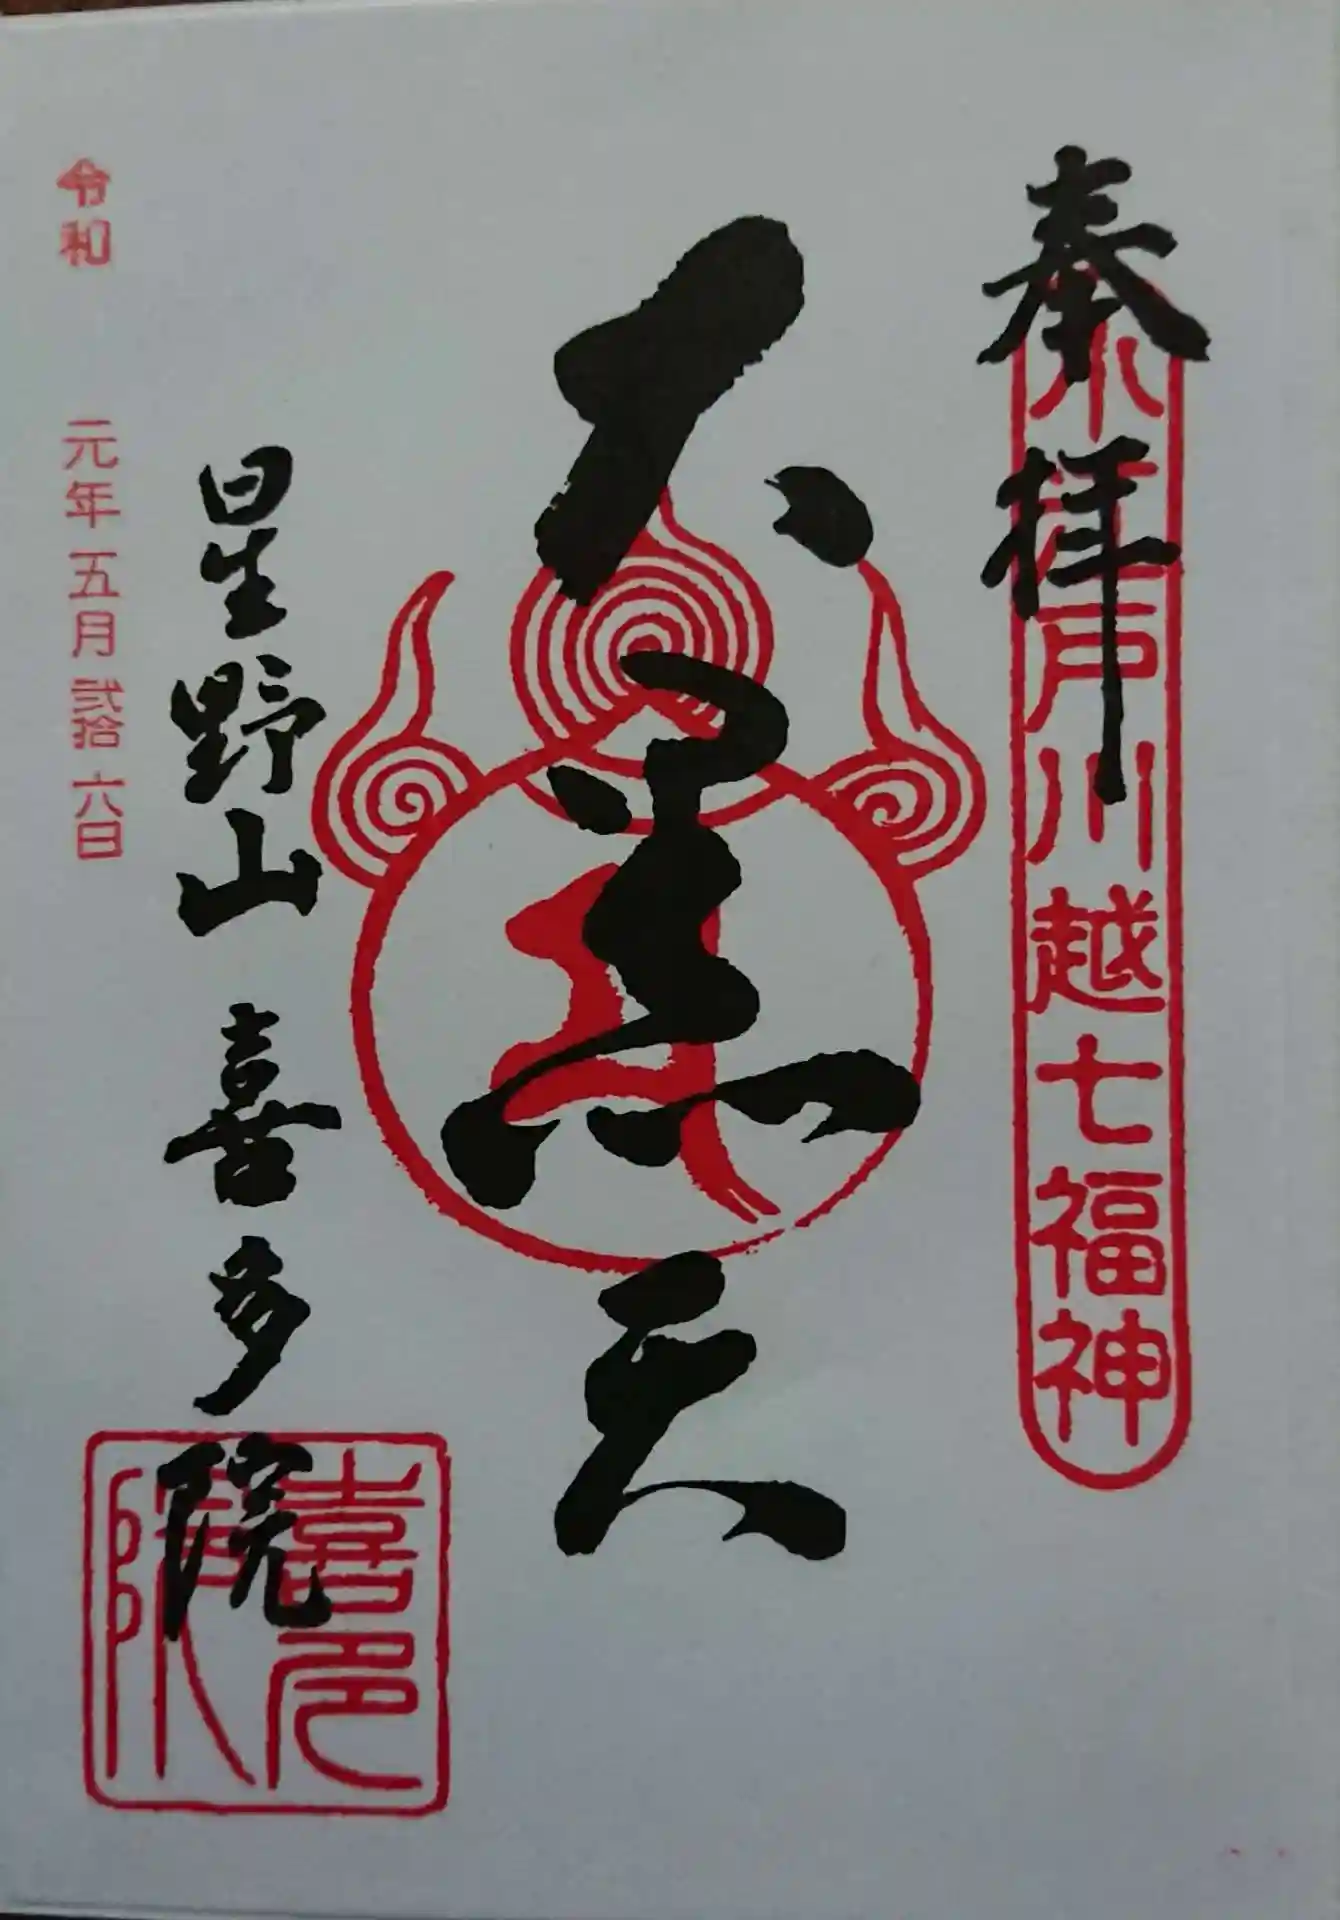 奉拝
小江戸川越七福神
大黒天
星野山 喜多院
喜多院
令和 元年五月弐拾六日